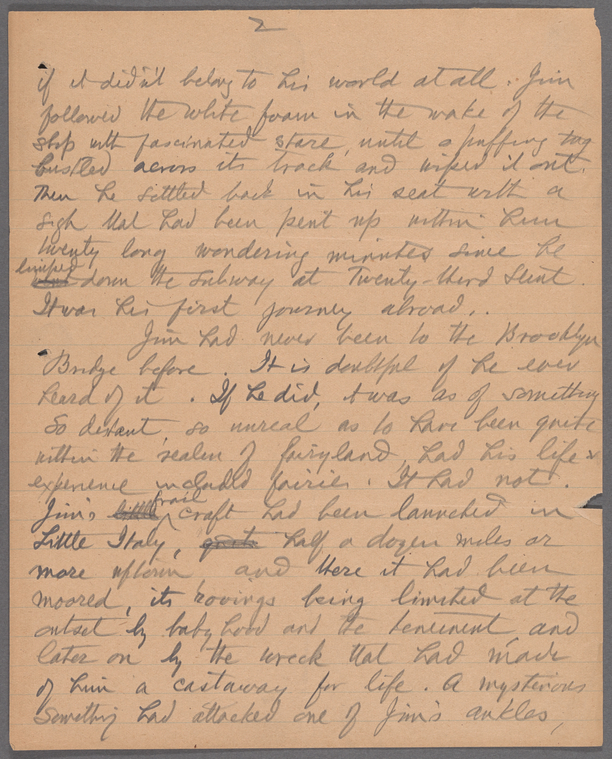 2
if it didn't belong to his world at all. Jim
followed the white foam in the wake of the
ship with fascinated stare, until a puffing tug
bustled across its track and wiped it out.
Then he settled back in his seat with a
sigh that had been pent up within him
twenty long wondering minutes since he
limped down the subway at Twenty-third Street.
It was his first journey abroad.
Jim had never been to the Brooklyn
Bridge before. It is doubtful if he ever
heard of it. If he did, it was as of something
so distant, so unreal as to have been quite
within the realm of fairyland, had his life
experience included fairies. It had not.
Jim's little frail craft had been launched in
Little Italy, quite half a dozen miles or
more uptown, and there it had been
moored, its rovings being limited at the
outset by babyhood and the tenement, and
later on by the wreck that had made
of him a castaway for life. A mysterious
something had attacked one of Jim's ankles,